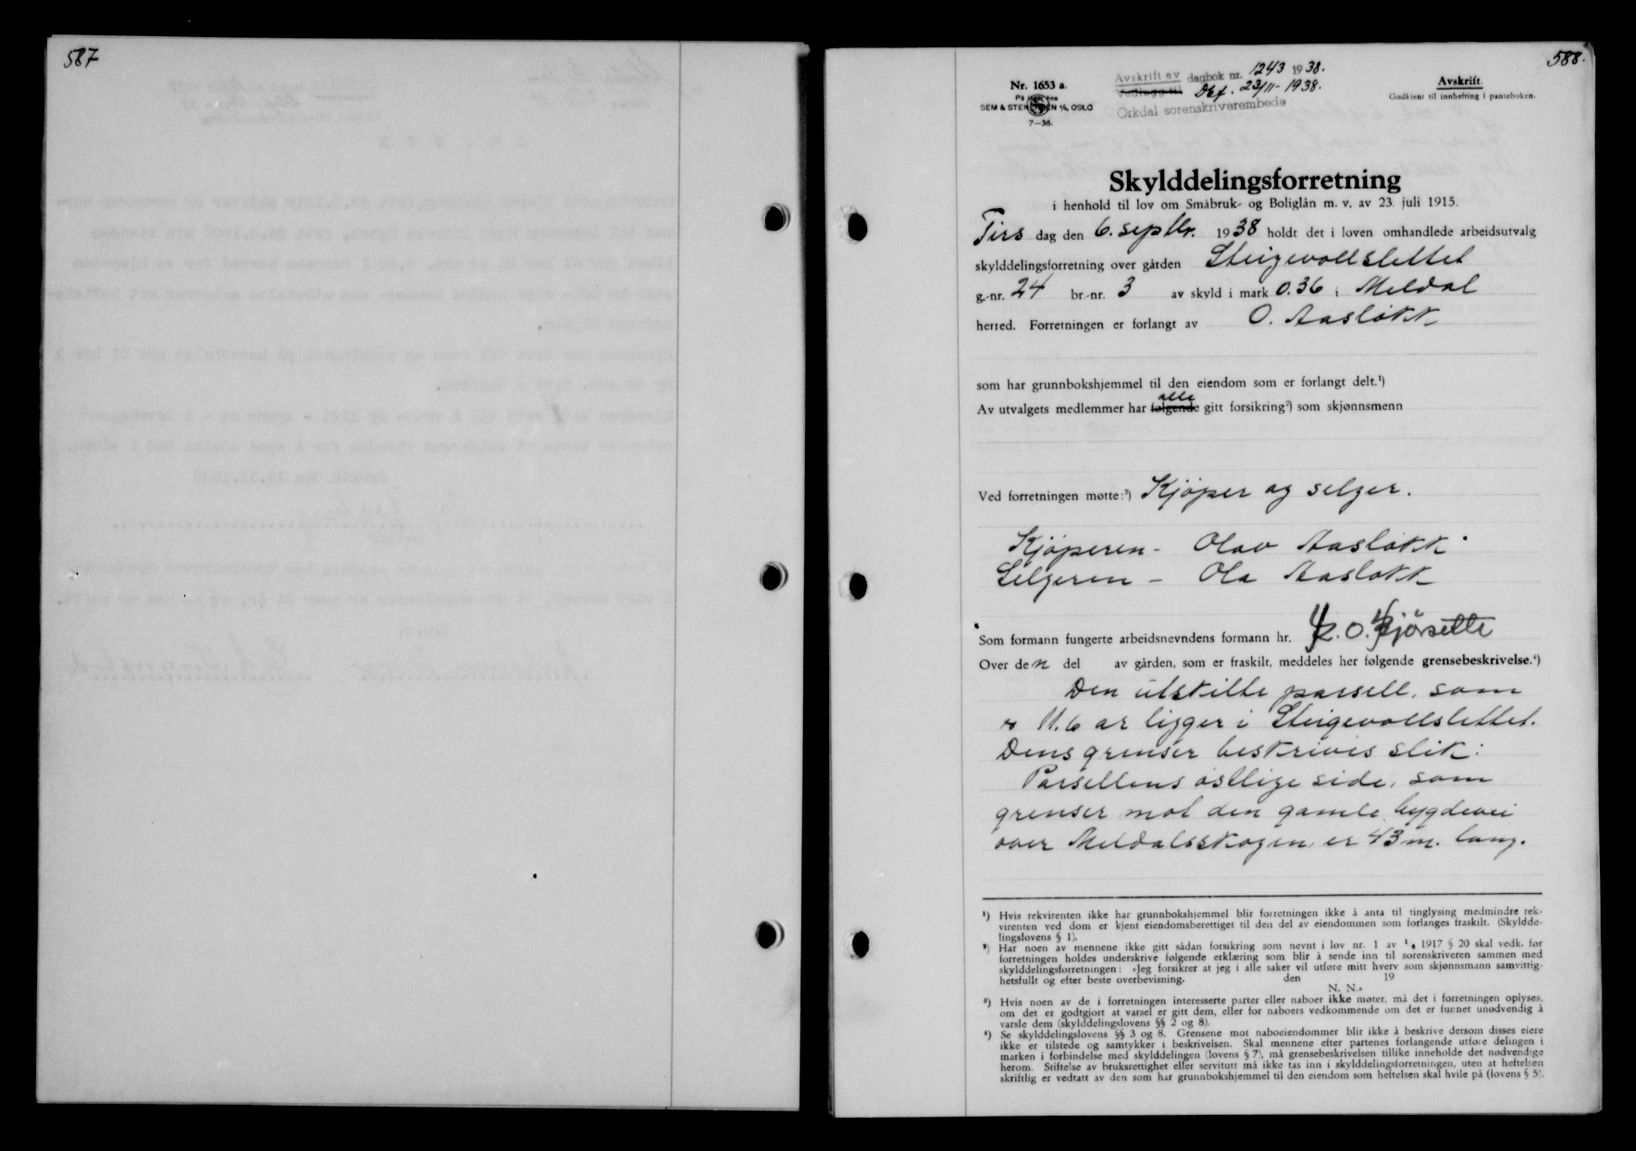 587
588.
Nr. 1653 a.
SEM & STENERSEN A/S, OSLO
7-36.
Avskrift av dagbok nr. 1243 1938.
Vedlegg til Dbf. 23/11-1938.
Orkdal sorenskriverembede
Avskrift.
Godkjent til innhefting i panteboken.
Skylddelingsforretning
i henhold til lov om Småbruk- og Boliglån m. v. av 23. juli 1915.
Tirs dag den 6. septbr. 1938 holdt det i loven omhandlede arbeidsutvalg
skylddelingsforretning over gården Steigevollslettet
g.-nr. 24 br.-nr. 3 av skyld i mark 0.36 i Meldal
herred. Forretningen er forlangt av O. Aasløkk
som har grunnbokshjemmel til den eiendom som er forlangt delt.¹)
alle
Av utvalgets medlemmer har følgende gitt forsikring²) som skjønnsmenn
Ved forretningen møtte:³) Kjøper og selger.
Kjøperen - Olav Aasløkk
Selgeren - Ola Aasløkk
Som formann fungerte arbeidsnevndens formann hr. O.
Over den del av gården, som er fraskilt, meddeles her følgende grensebeskrivelse.⁴)
Den utskilte parsell, som
er 11.6 ar ligger i Steigevollslettet.
Dens grenser beskrives slik:
Parsellens østlige side, som
grenser mot den gamle bygdevei
over Meldalsskogen, er 43 m. lang.
¹) Hvis rekvirenten ikke har grunnbokshjemmel blir forretningen ikke å anta til tinglysing medmindre rek-
virenten ved dom er kjent eiendomsberettiget til den del av eiendommen som forlanges fraskilt. (Skyldde-
lingslovens § 1).
²) Har noen av mennene ikke gitt sådan forsikring som nevnt i lov nr. 1 av 1917 § 20 skal vedk. før
forretningen holdes underskrive følgende erklæring som blir å sende inn til sorenskriveren sammen med
skylddelingsforretningen: «Jeg forsikrer at jeg i alle saker vil utføre mitt hverv som skjønnsmann samvittig-
hetsfullt og efter beste overbevisning. den 19
N. N.»
³) Hvis noen av de i forretningen interesserte parter eller naboer ikke møter, må det i forretningen oplyses,
om det er godtgjort at varsel er gitt dem, eller for naboers vedkommende om det er funnet unødvendig å
varsle dem (skylddelingslovens §§ 2 og 8).
⁴) Se skylddelingslovens §§ 3 og 8. Grensene mot naboeiendommer blir ikke å beskrive dersom disses eiere
ikke er tilstede og samtykker i beskrivelsen. Skal mennene efter partenes forlangende utføre delingen i
marken i forbindelse med skylddelingen (lovens § 7), må grensebeskrivelsen tillike inneholde det nødvendige
herom. Stiftelse av bruksrettighet eller servitutt må ikke tas inn i skylddelingsforretningen, uten at heftelsen
skriftlig er vedtatt av den som har grunnbokshjemmel til den eiendom som heftelsen skal hvile på (lovens § 5).